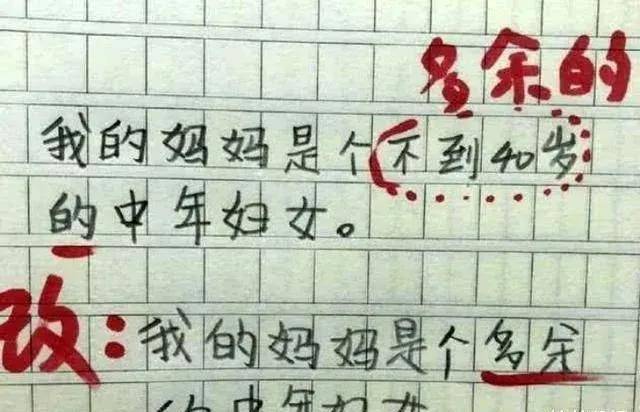 多余的
我的妈妈是个(不到40岁
的中年妇女。
改:我的妈妈是个多余
的中年妇女